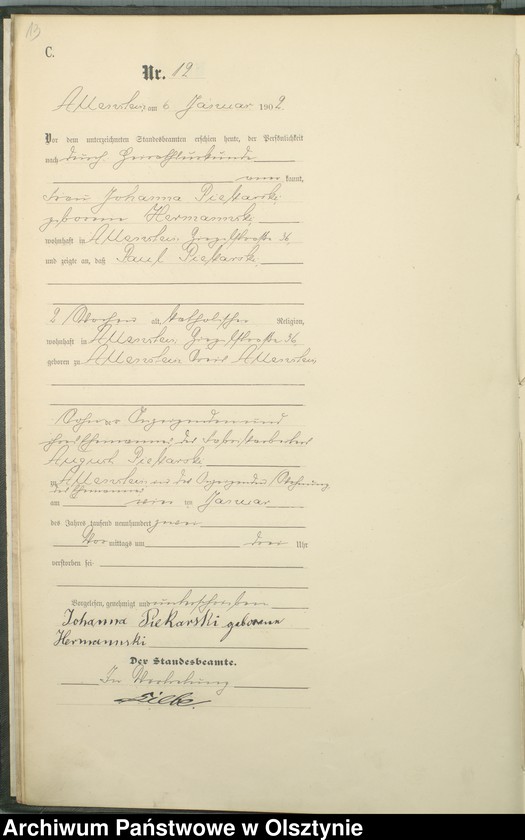 13
C.
Nr. 12
Allenstein am 6 Januar 1902.
Vor dem unterzeichneten Standesbeamten erschien heute, der Persönlichkeit
nach durch Heirathsurkunde
kannt,
Frau Johanna Piekarski
geborene Hermannski
wohnhaft in Allenstein 36
und zeigte an, daß Paul Piekarski
2 Wochen alt, katholischer Religion,
wohnhaft in Allenstein 36
geboren zu Allenstein Kreis Allenstein
Sohn der Anzeigenden und
ihres Ehemannes des Fabrikarbeiters
August Piekarski
zu Allenstein in der Anzeigenden Wohnung
des Ehemannes
am vier ten Januar
des Jahres tausend neunhundert zwei
Vor mittags um drei Uhr
verstorben sei
Vorgelesen, genehmigt und unterschrieben
Johanna Piekarski geborene
Hermannski
Der Standesbeamte.
In Vertretung
Archiwum Państwowe w Olsztynie